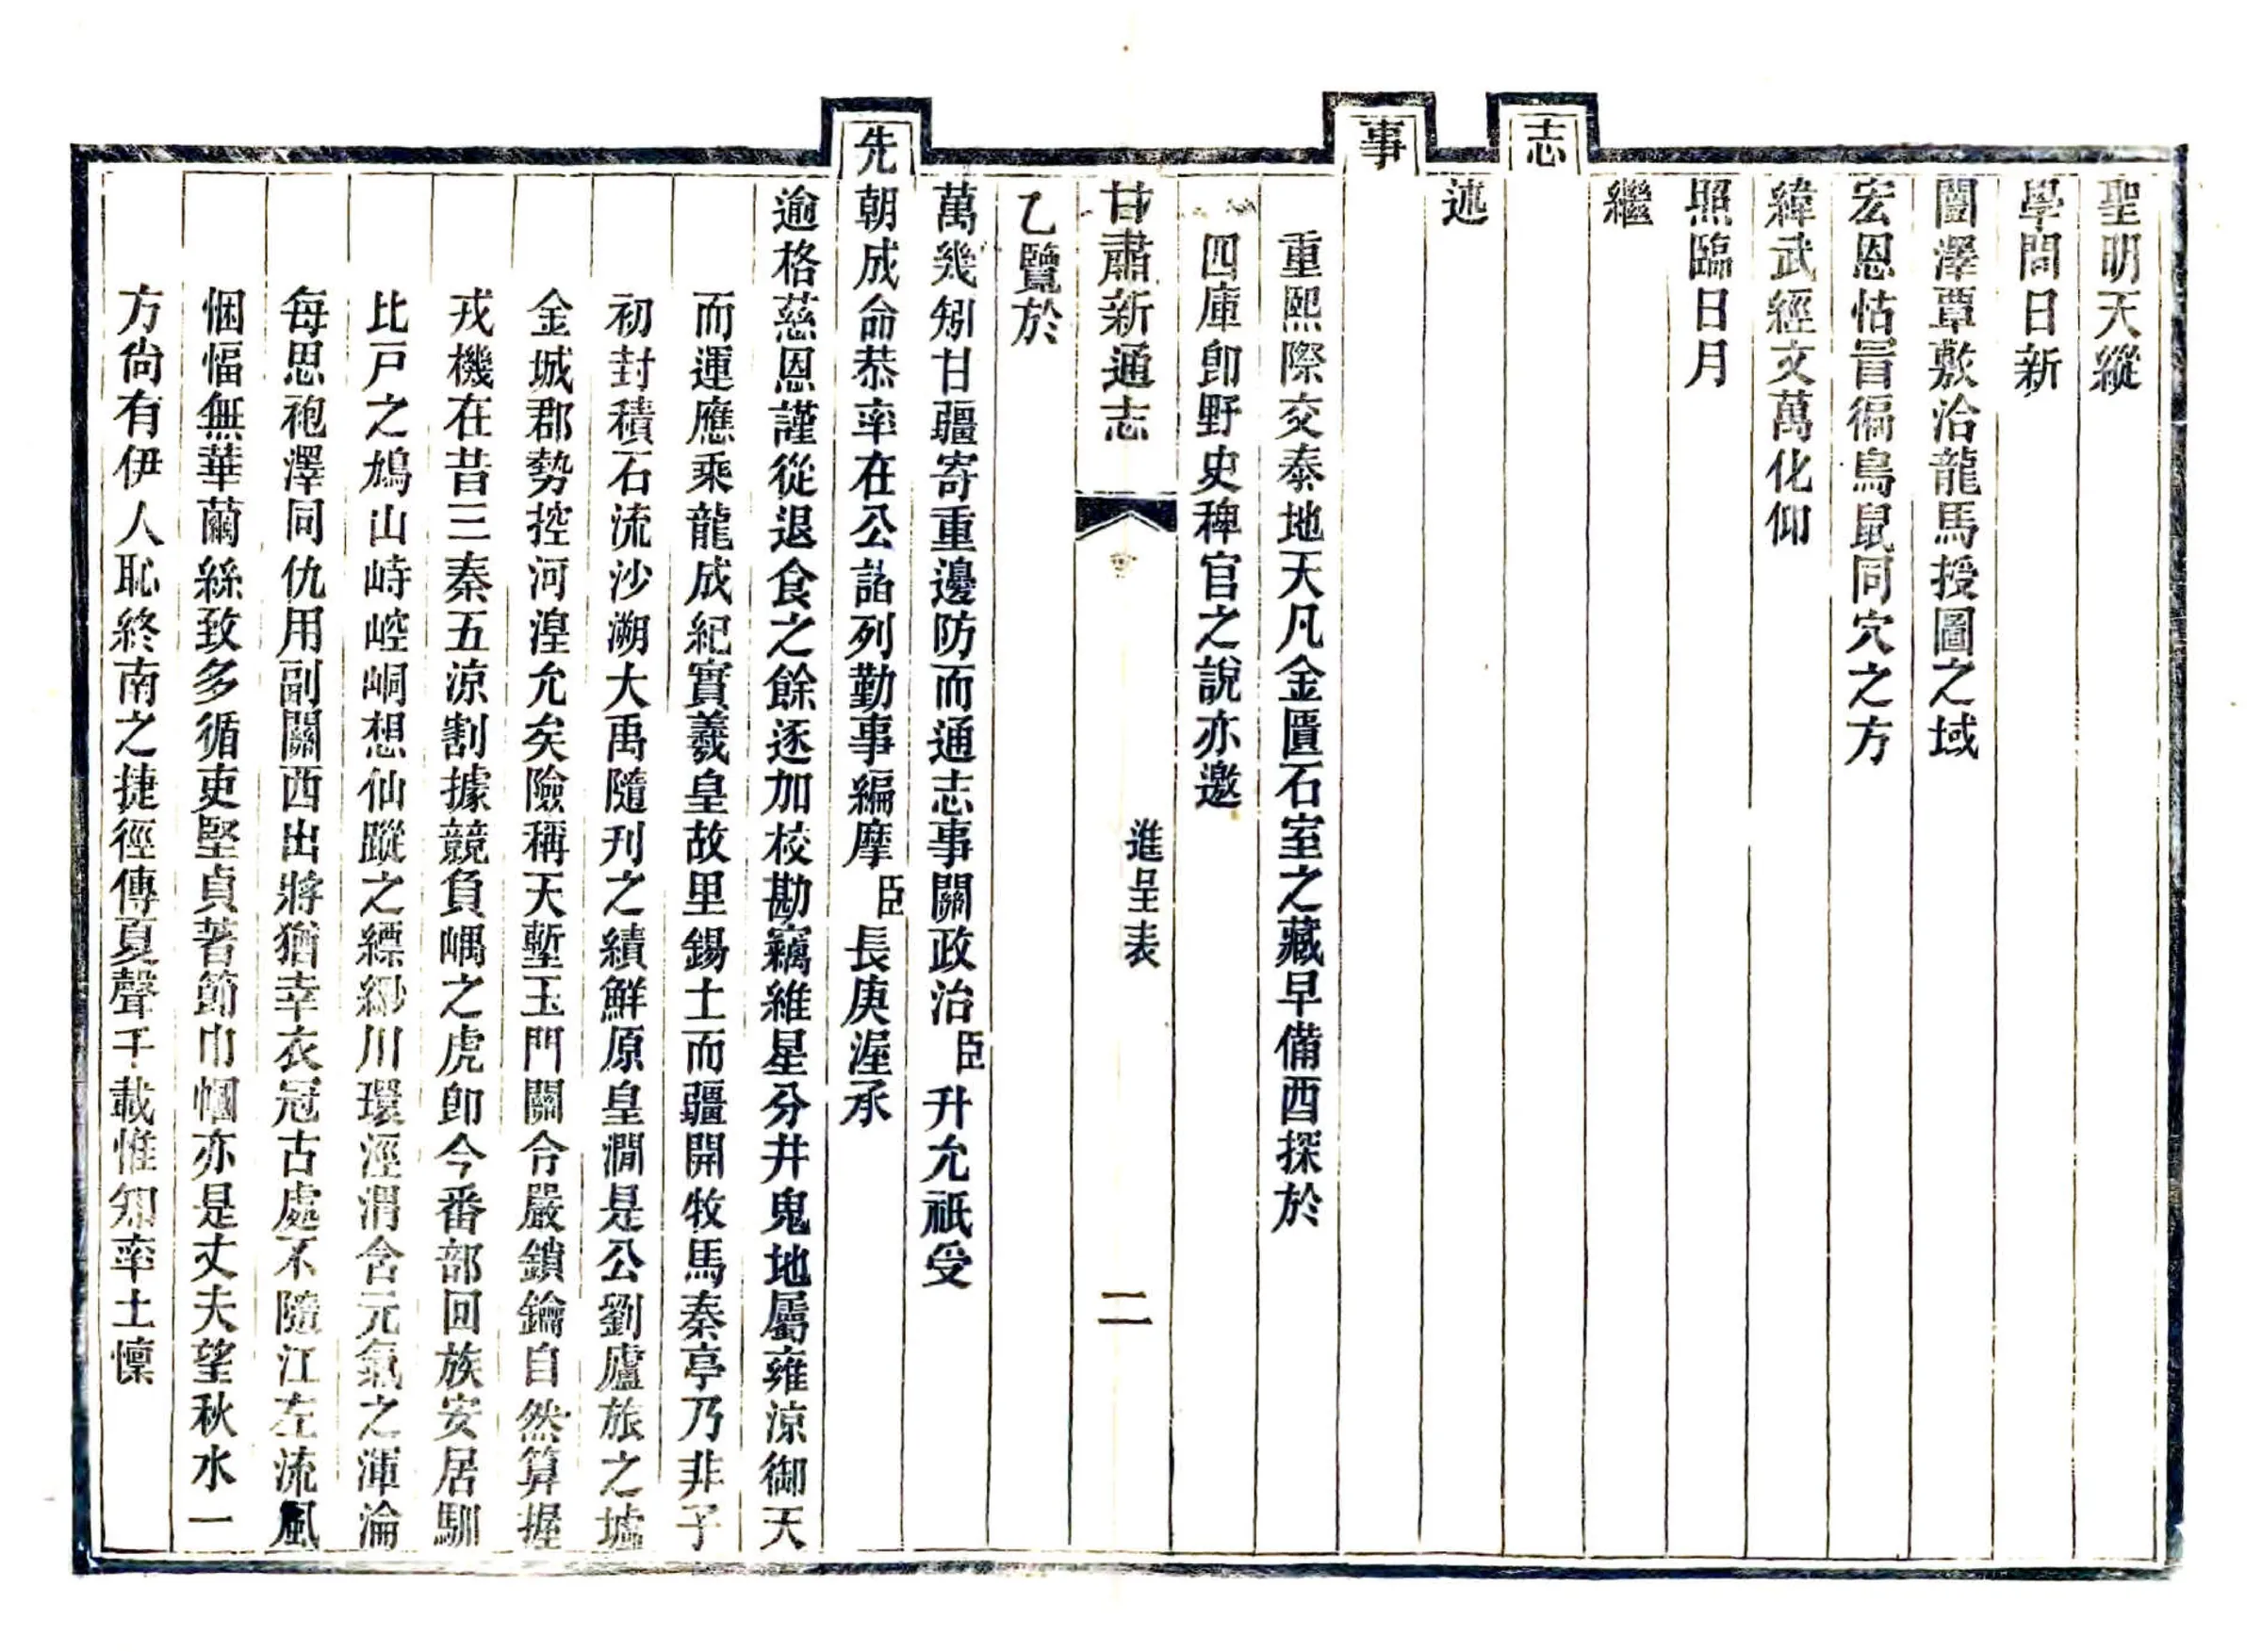 聖明天縱
學問日新
闓澤覃敷洽龍馬授圖之域
宏恩怙冒徧鳥鼠同穴之方
緯武經文萬化仰
照臨日月
繼
志
述
事
重熙際交泰地天凡金匱石室之藏早備酉探於
四庫卽野史稗官之說亦邀
甘肅新通志
進呈表
二
乙覽於
萬幾矧甘疆寄重邊防而通志事關政治臣升允祇受
先朝成命恭率在公諸列勤事編摩臣長庚渥承
逾格慈恩謹從退食之餘逐加校勘竊維星分井鬼地屬雍涼御天
而運應乘龍成紀實羲皇故里錫土而疆開牧馬秦亭乃非子
初封積石流沙溯大禹隨刊之績鮮原皇澗是公劉廬旅之墟
金城郡勢控河湟允矣險稱天塹玉門關令嚴鎖鑰自然算握
戎機在昔三秦五涼割據競負嵎之虎卽今番部回族安居馴
比戶之鳩山峙崆峒想仙蹤之縹緲川環涇渭含元氣之渾淪
每思袍澤同仇用副關西出將猶幸衣冠古處不隨江左流風
悃愊無華蘭絲致多循吏堅貞著節巾幗亦是丈夫望秋水一
方尙有伊人恥終南之捷徑傳夏聲千載惟知率土懍